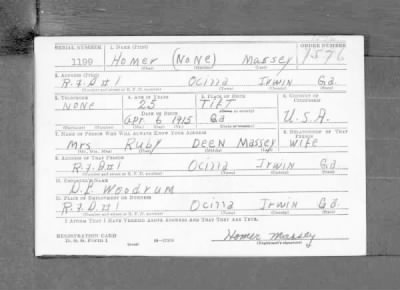 SERIAL NUMBER 1. NAME (Print) ORDER NUMBER
1199 Homer (None) Massey 1576
(First) (Middle) (Last)
2. ADDRESS (Print)
R.F.D #1 Ocilla Irwin Ga.
(Town) (County) (State)
3. TELEPHONE 4. AGE IN YEARS 5. PLACE OF BIRTH 6. COUNTRY OF CITIZENSHIP
None 25 Tift
DATE OF BIRTH
Apr. 6 1915 Ga U.S.A.
(Mo.) (Day) (Yr.)
7. NAME OF PERSON WHO WILL ALWAYS KNOW YOUR ADDRESS 8. RELATIONSHIP OF THAT PERSON
Mrs Ruby Deen Massey wife
(Mr., Mrs., Miss) (First) (Middle) (Last)
9. ADDRESS OF THAT PERSON
R.F.D #1 Ocilla Irwin Ga
10. EMPLOYER'S NAME
D.L Woodrum
11. PLACE OF EMPLOYMENT OR BUSINESS
R.F.D #1 Ocilla Irwin Ga
(Town) (County) (State)
I AFFIRM THAT I HAVE VERIFIED ABOVE ANSWERS AND THAT THEY ARE TRUE.
REGISTRATION CARD
D. S. S. FORM 1 Homer Massey
(Registrant's signature)